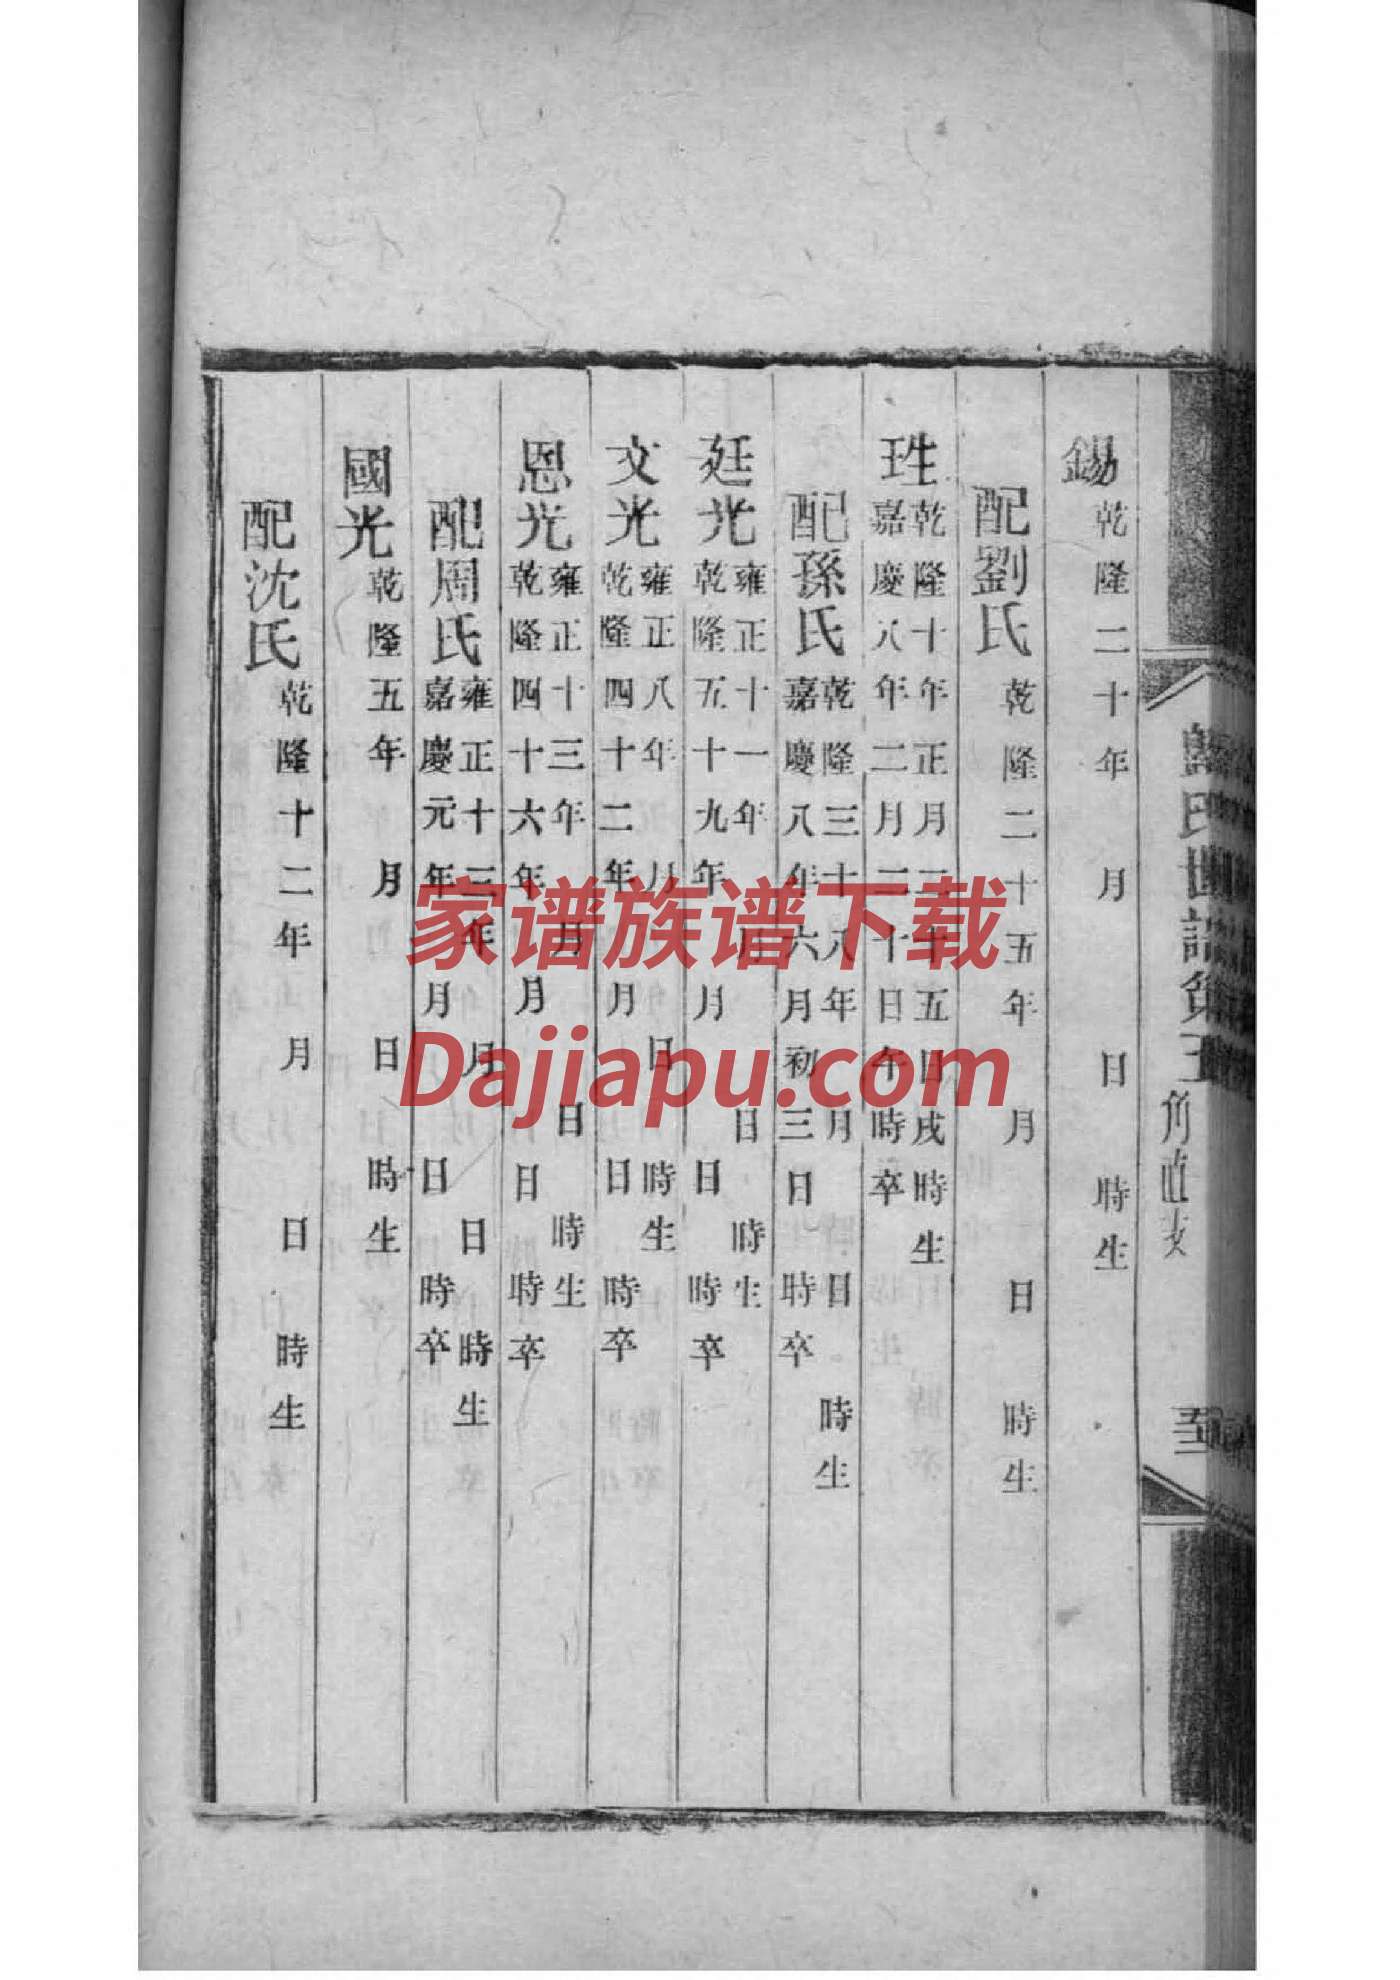 錫乾隆二十年 月 日 時生
配劉氏乾隆二十五年 月 日 時生
珄乾隆十年正月二十五日戌時生
嘉慶八年二月二十日午時卒
配孫氏乾隆三十八年 月 日 時生
嘉慶八年六月初三日 時卒
廷光雍正十一年 月 日 時生
乾隆五十九年 月 日 時卒
文光雍正八年 月 日 時生
乾隆四十二年 月 日 時卒
恩光雍正十三年 月 日 時生
乾隆四十六年 月 日 時卒
配周氏雍正十三年 月 日 時生
嘉慶元年 月 日 時卒
國光乾隆五年 月 日 時生
配沈氏乾隆十二年 月 日 時生
氏世譜
家谱族谱下载
Dajiapu.com